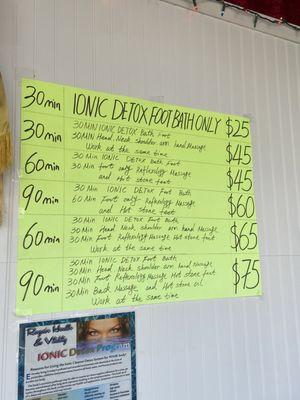 30min IONIC DETOX FOOT BATH ONLY $25
30min 30MIN IONIC DETOX Bath Foot $45
30MIN Head Neck shoulder arm hand Massage
Work at the same time
60min 30 Min IONIC DETOX Bath Foot $45
30 Min foot only Reflexology Massage
and Hot stone foot
90min 30 Min IONIC DETOX Foot Bath $60
60 Min Foot only Reflexology Massage
and Hot stone foot
60min 30 Min IONIC DETOX Foot Bath $65
30 Min Head, Neck shoulder arm hand Massage
30 Min Foot Reflexology Massage Hot stone foot
Work at the same time
90min 30 Min IONIC DETOX Foot Bath $75
30 Min Head Neck shoulder arm hand Massage
30 Min Foot Reflexology Massage Hot stone foot
30 Min Back Massage and Hot stone oil
Work at the same time
Health
& Vitality
IONIC Detox Program